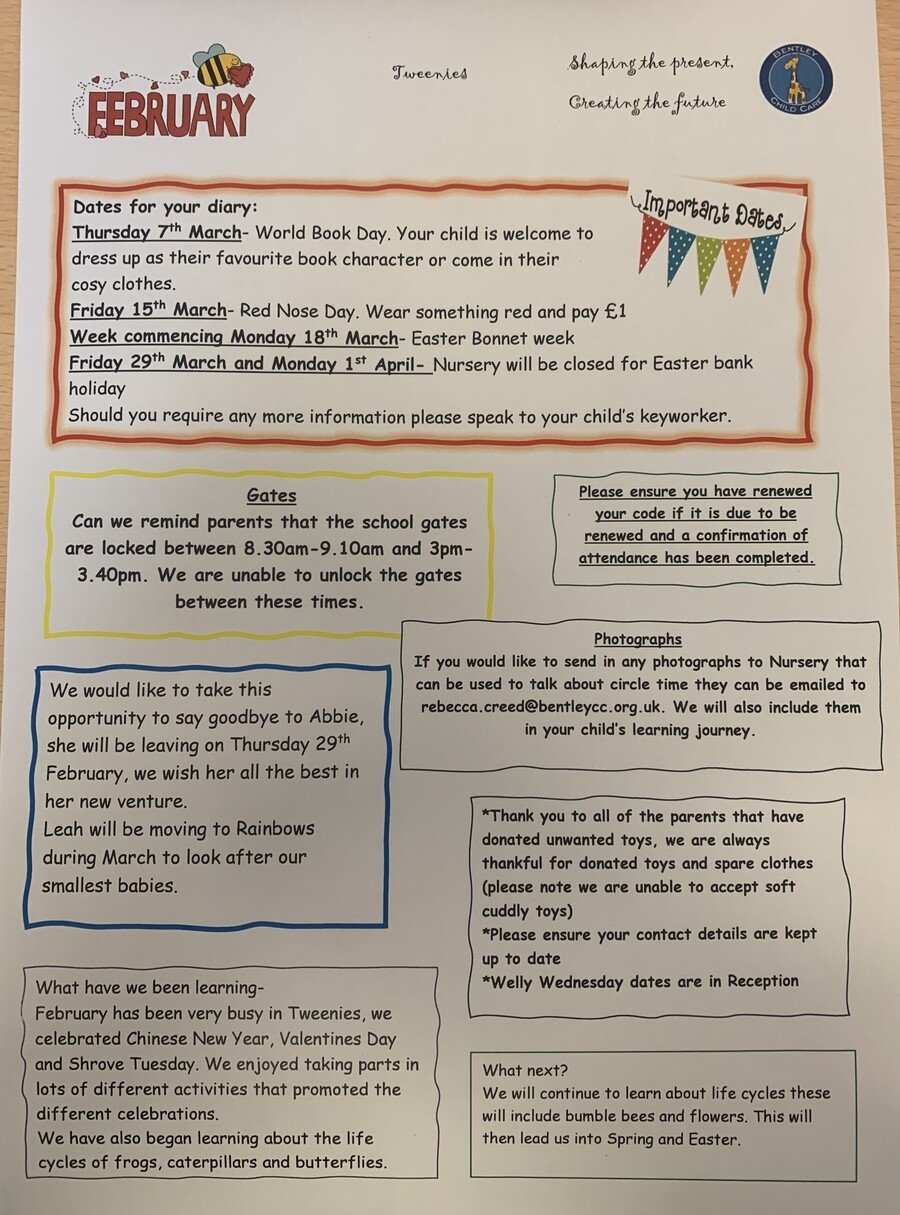 FEBRUARY
Tweenies
Shaping the present,
Creating the future
BENTLEY
CHILD CARE
Important Dates
Dates for your diary:
Thursday 7th March- World Book Day. Your child is welcome to
dress up as their favourite book character or come in their
cosy clothes.
Friday 15th March- Red Nose Day. Wear something red and pay £1
Week commencing Monday 18th March- Easter Bonnet week
Friday 29th March and Monday 1st April- Nursery will be closed for Easter bank
holiday
Should you require any more information please speak to your child's keyworker.
Gates
Can we remind parents that the school gates
are locked between 8.30am-9.10am and 3pm-
3.40pm. We are unable to unlock the gates
between these times.
Please ensure you have renewed
your code if it is due to be
renewed and a confirmation of
attendance has been completed.
Photographs
If you would like to send in any photographs to Nursery that
can be used to talk about circle time they can be emailed to
rebecca.creed@bentleycc.org.uk. We will also include them
in your child's learning journey.
We would like to take this
opportunity to say goodbye to Abbie,
she will be leaving on Thursday 29th
February, we wish her all the best in
her new venture.
Leah will be moving to Rainbows
during March to look after our
smallest babies.
*Thank you to all of the parents that have
donated unwanted toys, we are always
thankful for donated toys and spare clothes
(please note we are unable to accept soft
cuddly toys)
*Please ensure your contact details are kept
up to date
*Welly Wednesday dates are in Reception
What have we been learning-
February has been very busy in Tweenies, we
celebrated Chinese New Year, Valentines Day
and Shrove Tuesday. We enjoyed taking parts in
lots of different activities that promoted the
different celebrations.
We have also began learning about the life
cycles of frogs, caterpillars and butterflies.
What next?
We will continue to learn about life cycles these
will include bumble bees and flowers. This will
then lead us into Spring and Easter.